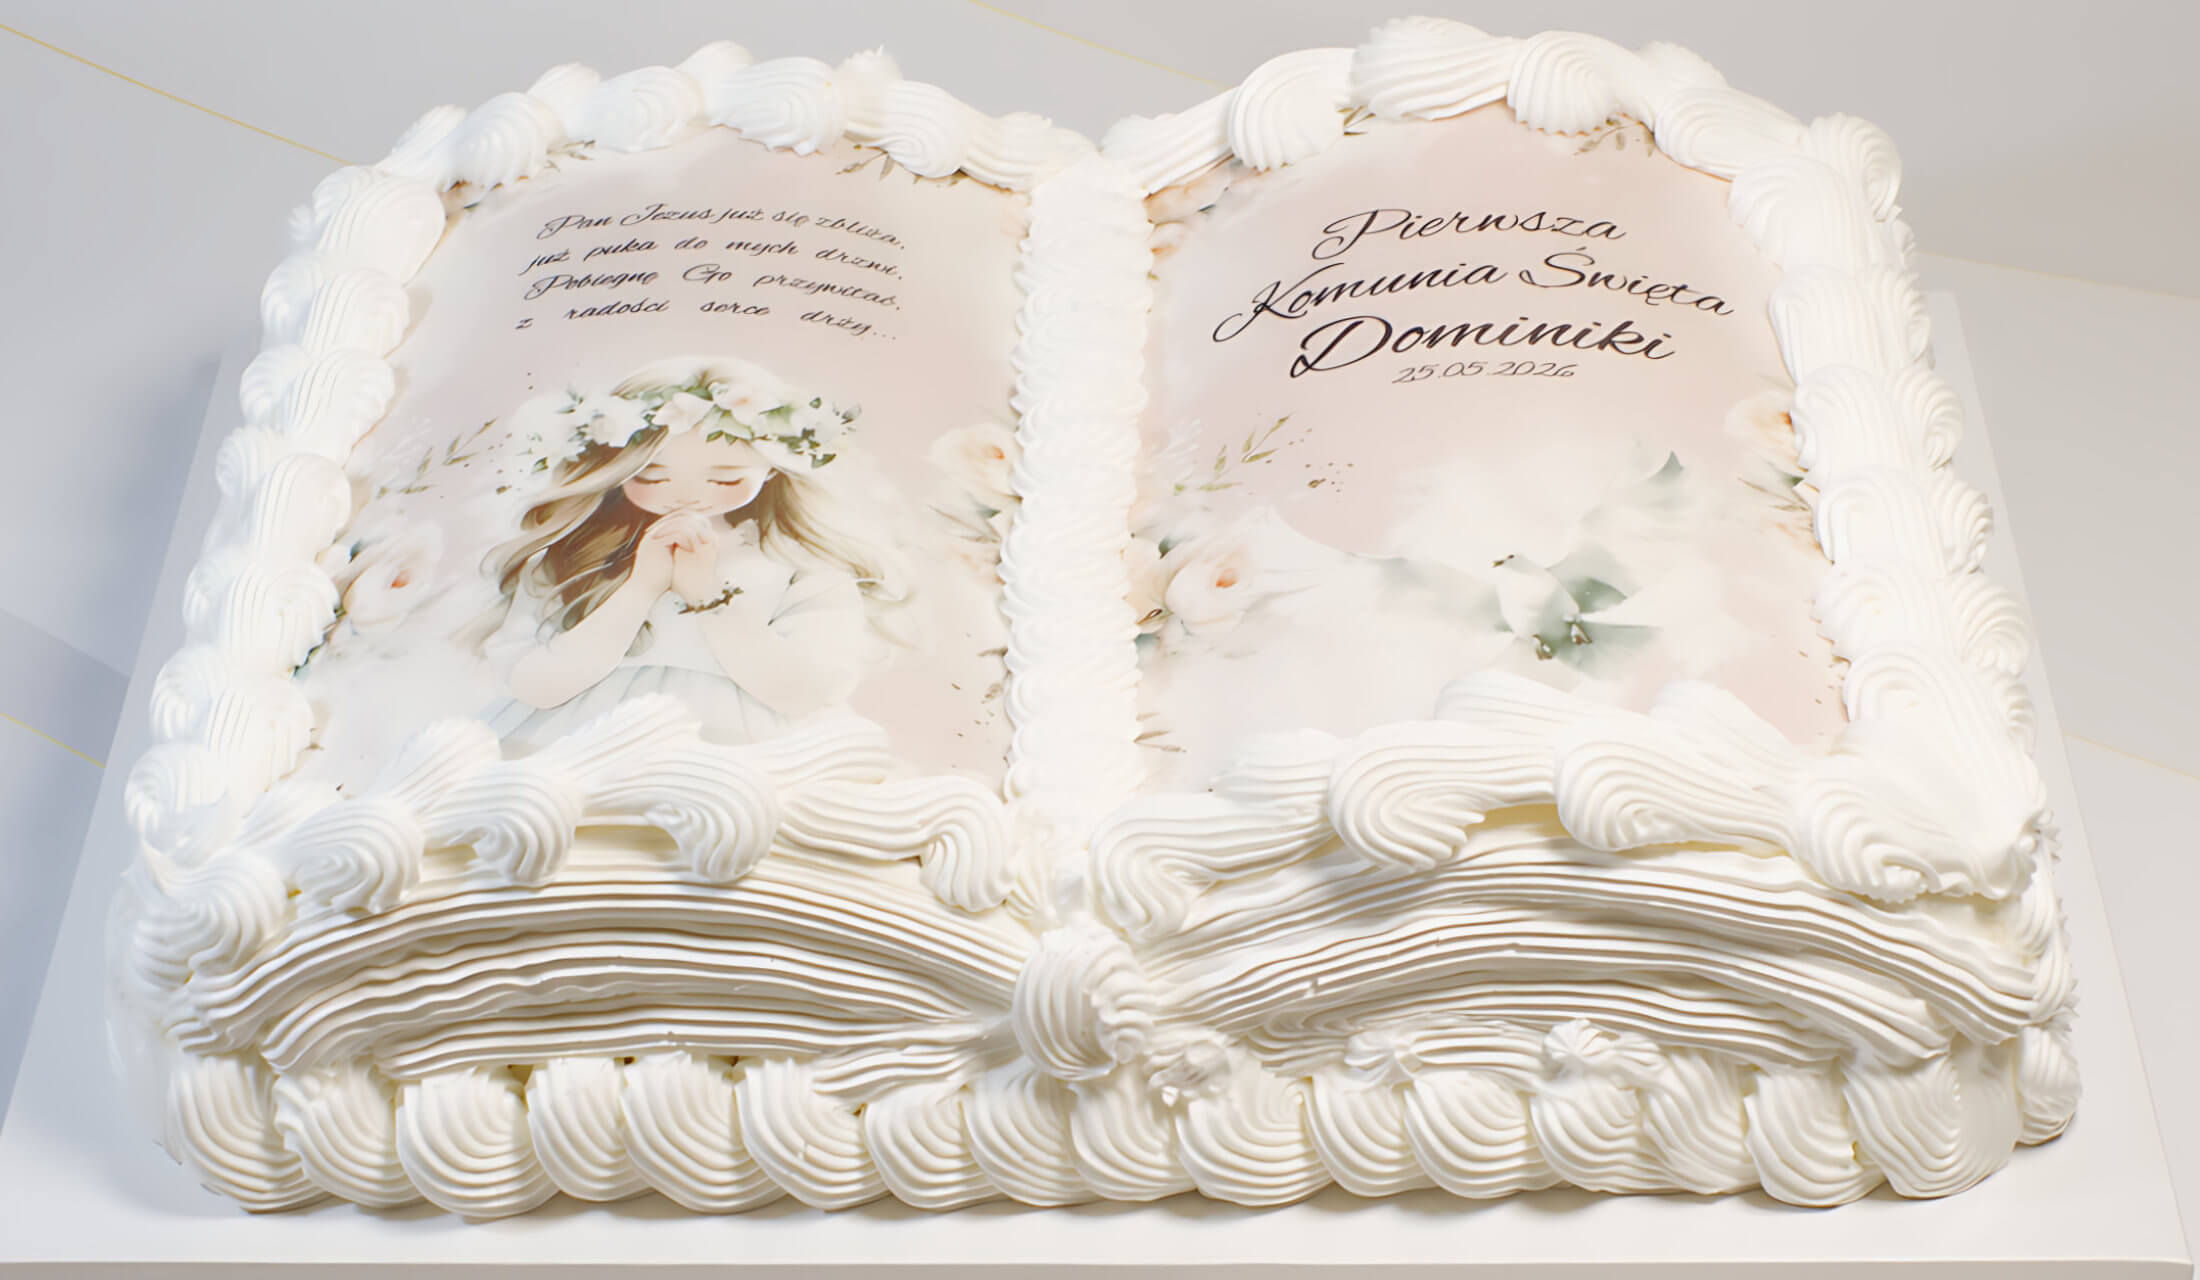 Pan Jezus już się zbliża,
już puka do mych drzwi.
Pobiegnę Go przywitać,
z radości serce drży...
Pierwsza
Komunia Święta
Dominiki
25.05.2026